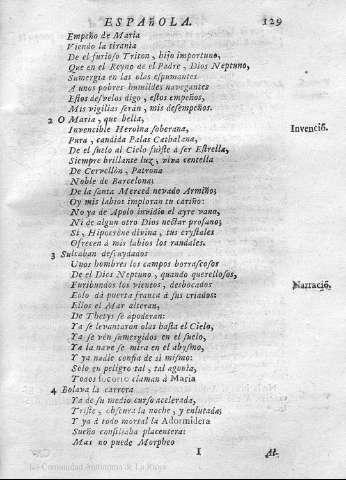 ESPAñOLA. 129
Empeño de Maria
Viendo la tirania
De el furioso Triton, hijo importuno,
Que en el Reyno de el Padre, Dios Neptuno,
Sumergia en las olas espumantes
A unos pobres humildes navegantes
Estos desvelos digo, estos empeños,
Mis vigilias seràn, mis desempeños.
2 O Maria, que bella,
Invencible Heroina soberana, Invenciō.
Pura, candida Palas Cathalana,
De el suelo al Cielo fuiste à ser Estrella,
Siempre brillante luz, viva centella
De Cervellòn, Patrona
Noble de Barcelona;
De la santa Merced nevado Armiño;
Oy mis labios imploran tu cariño:
No ya de Apolo invidio el ayre vano,
Ni de algun otro Dios nectar profano;
Si, Hipocrène divina, tus crystales
Ofrecen à mis labios los raudales.
3 Sulcaban descuydados
Unos hombres los campos borrascosos
De el Dios Neptuno, quando querellosos,
Furibundos los vientos, desbocados Narraciō.
Eolo dà puerta franca à sus criados:
Ellos el Mar alteran,
De Thetys se apoderan:
Ya se levantaron olas hasta el Cielo,
Ya se vèn sumergidos en el suelo,
Ya la nave se mira en el abysmo,
Y ya nadie confia de sì mismo:
Solo en peligro tal, tal agonia,
Todos socorro claman à Maria
4 Bolava la carrera
Ya de su medio curso acelerada,
Triste, obscura la noche, y enlutada;
Y ya à todo mortal la Adormidera
Sueño conciliaba placentera:
Mas no puede Morpheo
I Al-
(c) Comunidad Autónoma de La Rioja